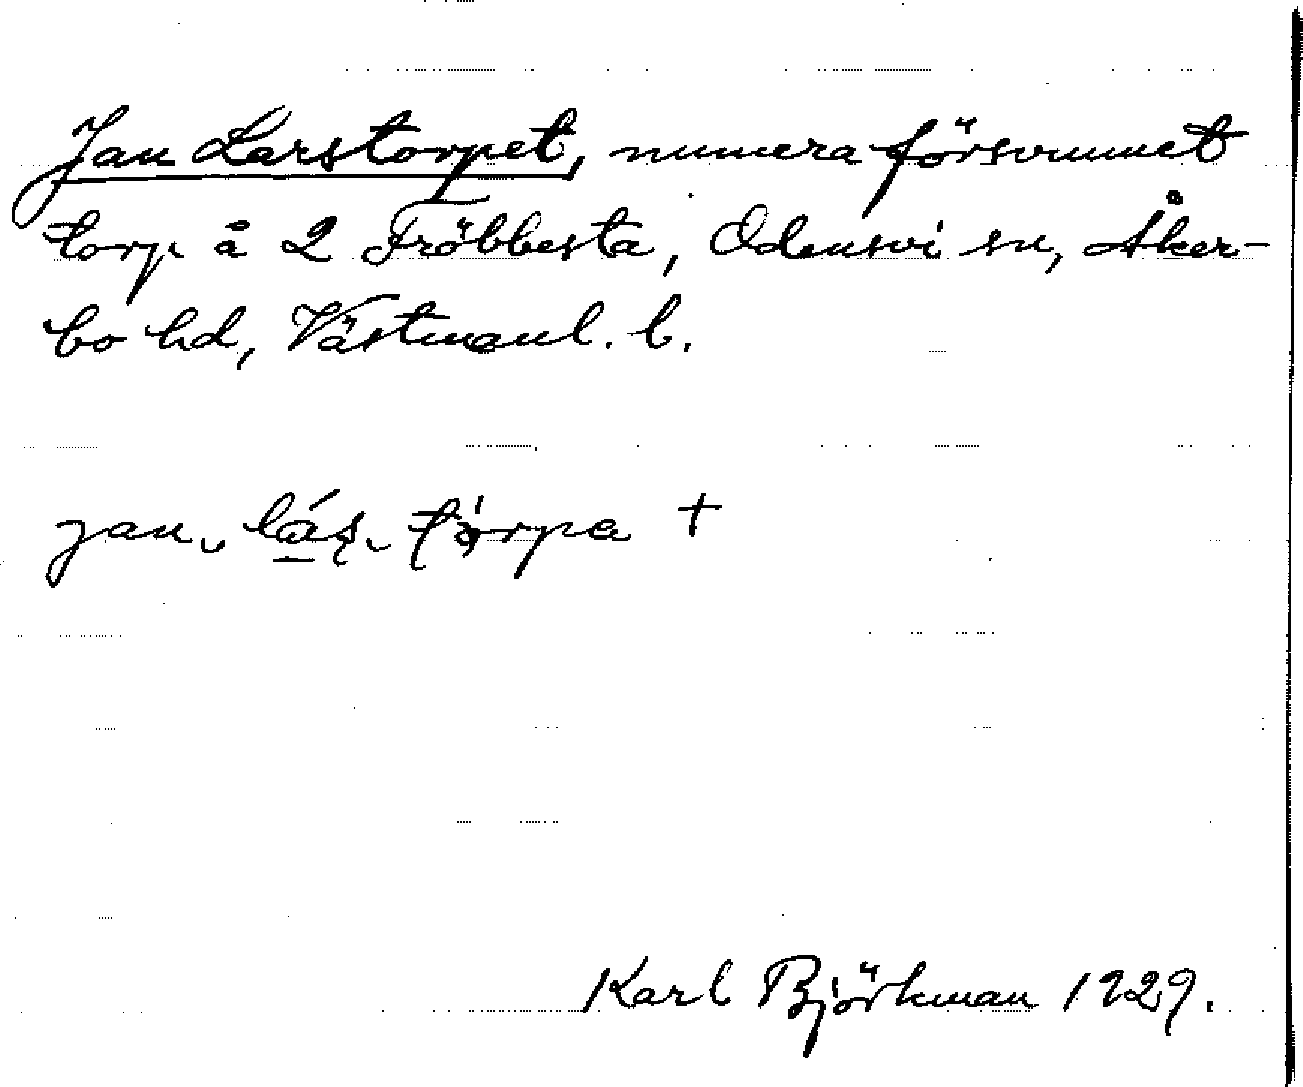 Jan Larstorpet, numera försvunnet
torp å 2 Fröbbesta, Odensvi sn, Åker-
bo hd, Västmanl. l.
jan
Karl Björkman 1929.